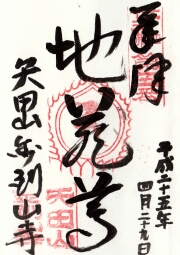 奉拝
地蔵尊
平成二十五年
四月二十九日
矢田山金剛山寺
矢田山